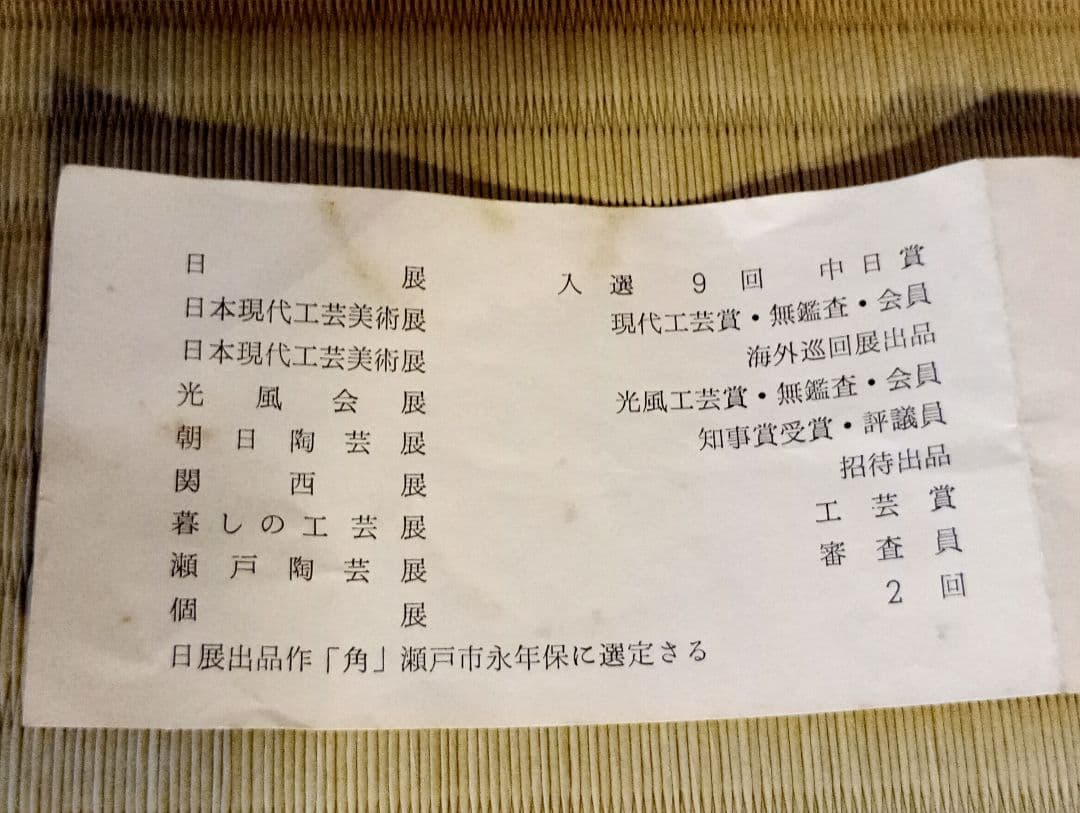 日展 入選9回 中日賞
日本現代工芸美術展 現代工芸賞・無鑑査・会員
日本現代工芸美術展 海外巡回展出品
光風会展 光風工芸賞・無鑑査・会員
朝日陶芸展 知事賞受賞・評議員
関西展 招待出品
暮しの工芸展 工芸賞
瀬戸陶芸展 審査員
個展 2回
日展出品作「角」瀬戸市永年保に選定さる